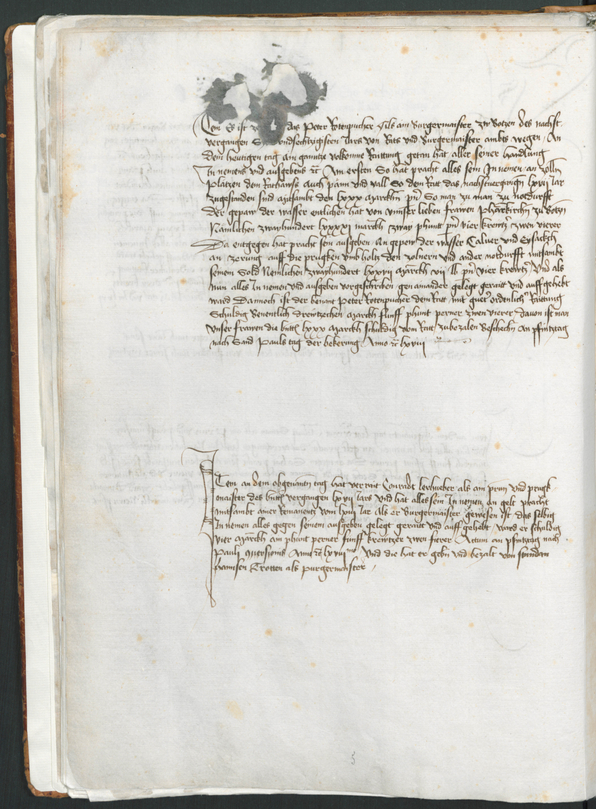 Item Es ist das Peter Rotenpucher als ain Burgermaister zu Botzen des nachst
vergangen undsechtzigisten Jares von Rats und Burgermaister ambts wegen An
dem heutigen tag ain gantze volkomne Raittung getan hat aller seiner handlung
In nemens und ausgebens etc Am ersten So hat pracht alles sein In nemen an zölln
platzen dem Rathauss auch pann und väll So dem Rat das nachstvergangen lxvij Jar
zugestanden sind mitsambt den lxxx marckhn pn So man zu notdurfft
der gepaw der wasser entlichen hat von unnser lieben frawen pharrkirchen zu Botzn
Nämlichen zwayhundert lxxxj march zway phunt pn vier kreutzer zwen vierer
Da entgegen hat pracht sein ausgeben An gepew der wasser Talver und Eysackhs
an zerung auff die prugken umb holtz den zolnern und ander notdurfft mitsambt
seinem Sold Nemlichen zwayhundert lxxvij march viij lb pn vier kreutzer Und als
nun alles In nemen und ausgeben vorgeschriben gen ainander gelegt geraitt und auffgehebt
ward Dannoch ist der benant Peter Rotenpucher dem Rat mit guter ordenlicher Raittung
Schuldig beventlich dreutzechen march fünff phunt perner zwen vierer davon ist man
unser frawen die lxxx march schuldig vom Rat zubezalen Beschechen An phintztag
nach Sand Pauls tag der bekerung Anno etc lxviij
Item an dem obgenanten tag hat verrait Conradt lederer als ain pawm und prugk
maister des lxvij Jars und hat alles sein In nemen an gelt pracht
mitsambt ainer Remanentz vom lxvj Jar als er Burgermaister gewesen ist das selbig
In nemen alles gegen seinem ausgeben gelegt geraitt und auffgehebt ward er schuldig
vier march ain phunt perner funff kreutzer zwen fierer Actum an phintztag nach
Pauli conversionis Anno etc lxviij Und die hat er geben und bezalt von stundan
hannsen Krotten als purgermaister
5